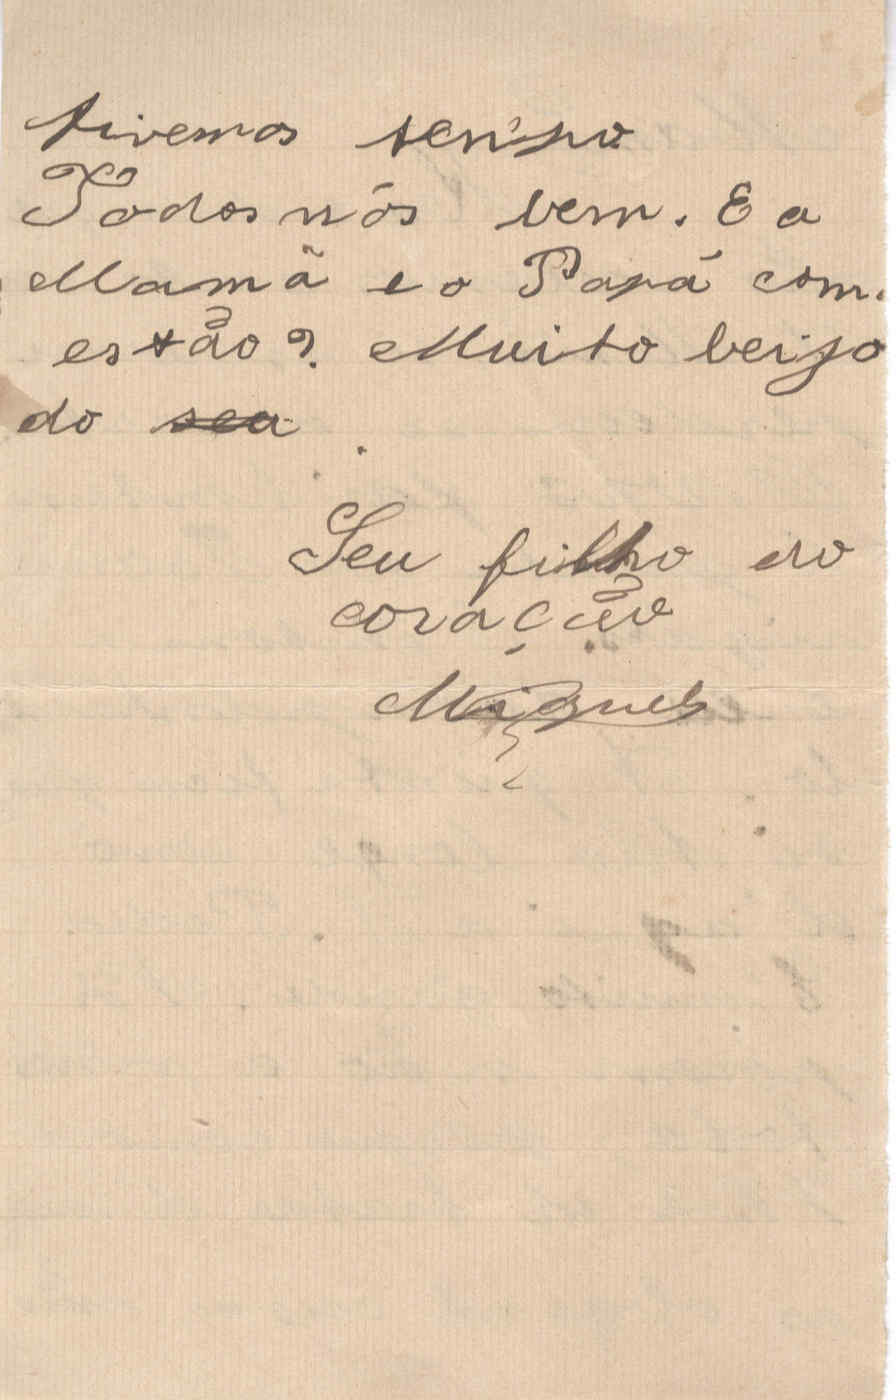 tivemos tempo
Todos nós bem. E a
Mamã e o Papá com.
estão? Muito beijo
do seu
Seu filho do
coração
Miguel